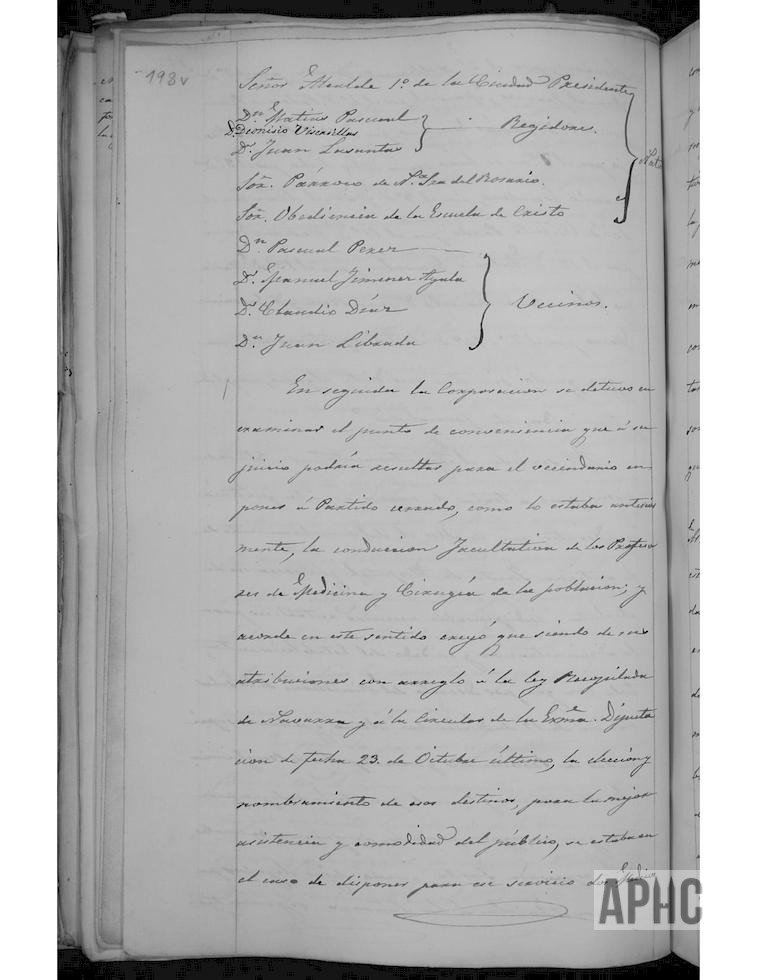 198v
Señor Alcalde 1º de la Ciudad Presidente
Dn. Matias Pascual
D. Dionisio Viscasillas
Dn. Juan Lasantas
Regidores.
Natos
Sôr. Párroco de Nª. Sra del Rosario.
Sôr. Obediencia de la Escuela de Cristo
Dn. Pascual Perez
Dn. Manuel Jimenez Ayala
Dn. Claudio Díaz
Dn. Juan Librada
Vecinos.
En seguida la Corporacion se detuvo en
examinar el punto de conveniencia que á su
juicio podría resultar para el vecindario en
poner á Partido cerrado, como lo estaba anterior
mente, la conducion Facultativa de los Profeso
res de Medicina y Cirugía de la poblacion; y
acorde en este sentido creyó que siendo de sus
atribuciones con arreglo á la ley Recopilada
de Navarra y á la Circular de la Exma. Diputa
cion de fecha 23. de Octubre último, la eleccion y
nombramiento de esos destinos, para la mejor
asistencia y comodidad del público, se estaba en
el caso de disponer para ese servicio dos Medicos
APHC